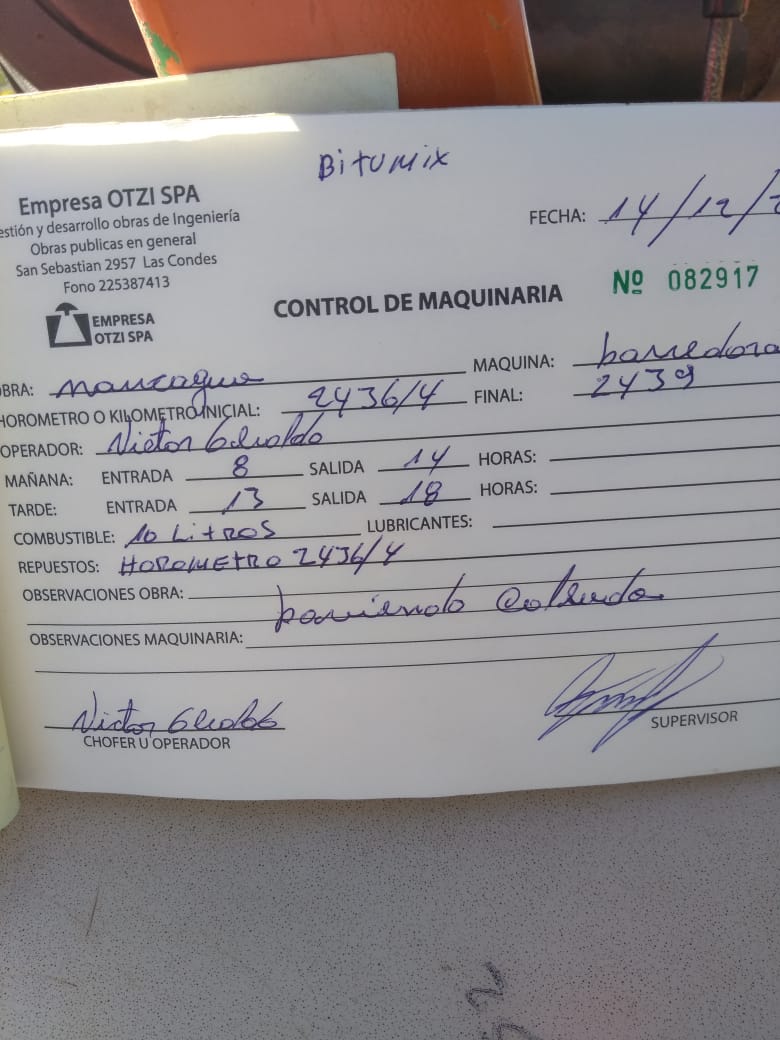 Bitumix
Empresa OTZI SPA
estión y desarrollo obras de Ingeniería
Obras publicas en general
San Sebastian 2957 Las Condes
Fono 225387413
EMPRESA
OTZI SPA
FECHA: 14/12/2
CONTROL DE MAQUINARIA
Nº 082917
OBRA:
MAQUINA: barredora
HOROMETRO O KILOMETRO INICIAL: 2436/4 FINAL: 2439
OPERADOR: Victor
MAÑANA: ENTRADA 8 SALIDA 14 HORAS:
TARDE: ENTRADA 13 SALIDA 18 HORAS:
COMBUSTIBLE: 10 LitROS LUBRICANTES:
REPUESTOS: HOROMETRO 2436/4
OBSERVACIONES OBRA:
barriendo
OBSERVACIONES MAQUINARIA:
Victor
CHOFER U OPERADOR
SUPERVISOR